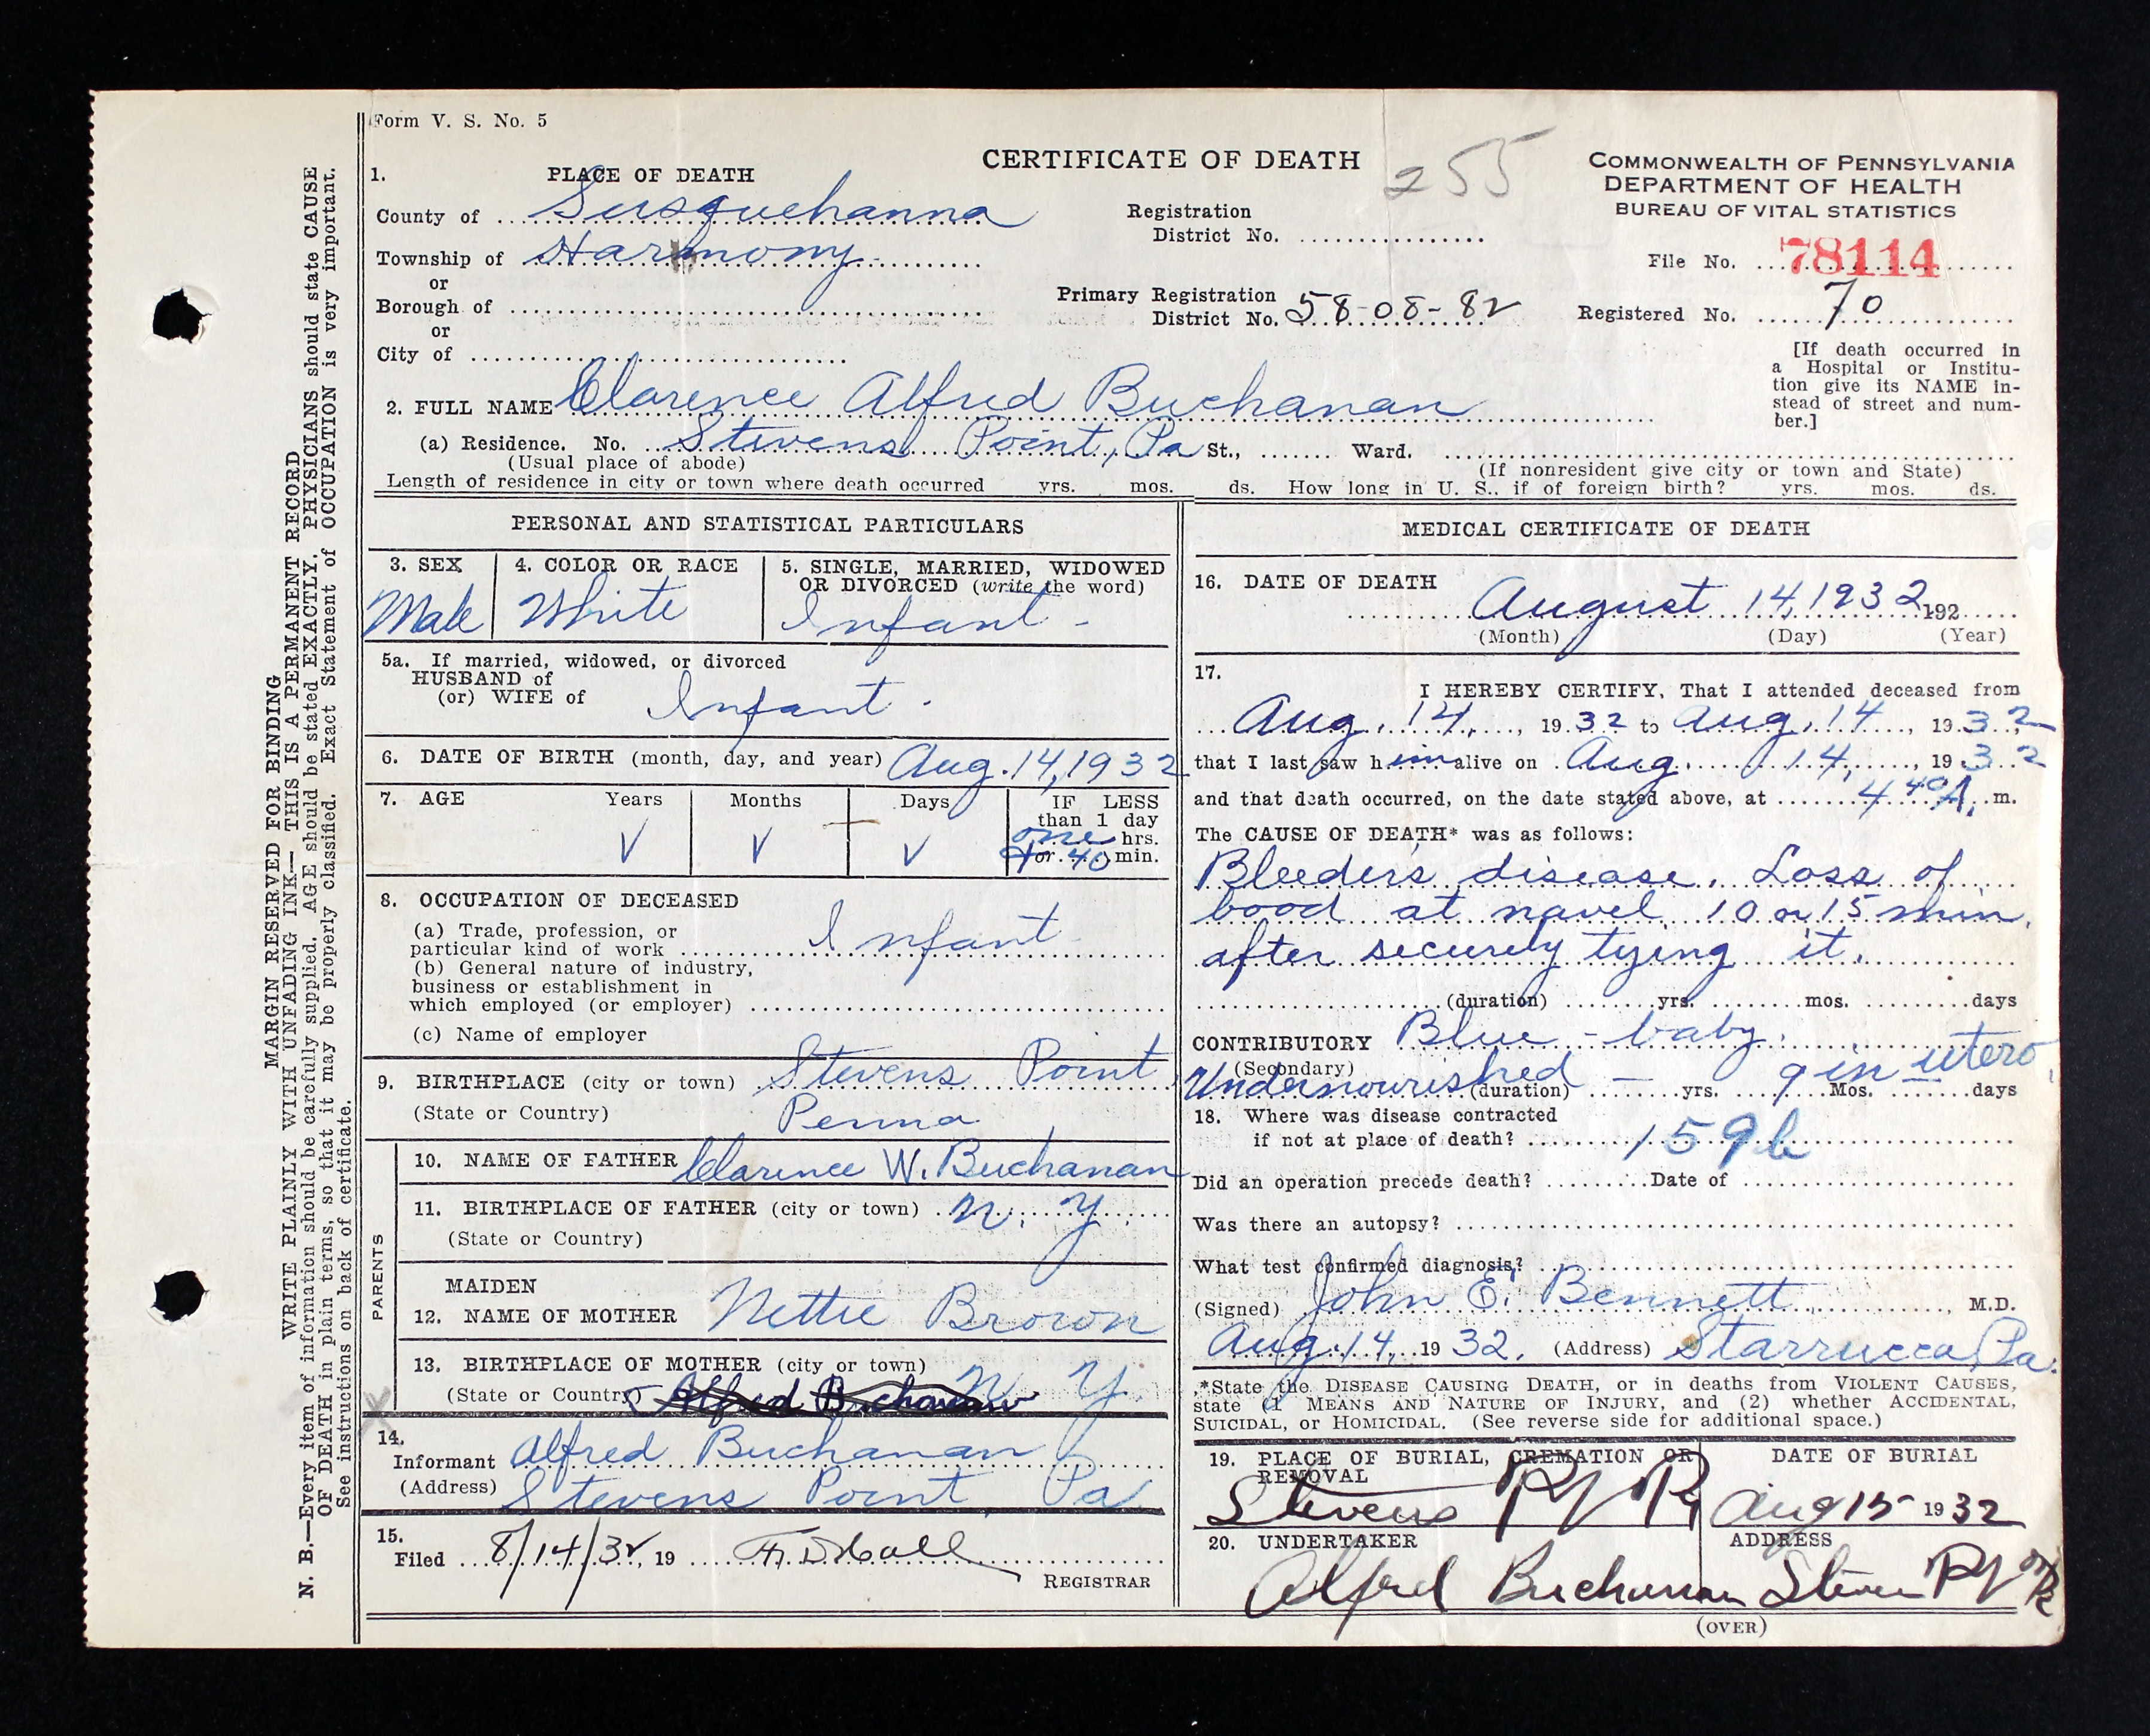 Form V. S. No. 5
CERTIFICATE OF DEATH
255
COMMONWEALTH OF PENNSYLVANIA
DEPARTMENT OF HEALTH
BUREAU OF VITAL STATISTICS
1. PLACE OF DEATH
County of Susquehanna
Township of Harmony
or
Borough of
or
City of
Registration
District No.
Primary Registration
District No. 58-08-82
File No. 78114
Registered No. 70
[If death occurred in
a Hospital or Institu-
tion give its NAME in-
stead of street and num-
ber.]
2. FULL NAME Clarence Alfred Buchanan
(a) Residence. No. Stevens Point, Pa St., Ward.
(Usual place of abode) (If nonresident give city or town and State)
Length of residence in city or town where death occurred yrs. mos. ds. How long in U. S., if of foreign birth? yrs. mos. ds.
PERSONAL AND STATISTICAL PARTICULARS
3. SEX 4. COLOR OR RACE 5. SINGLE, MARRIED, WIDOWED
OR DIVORCED (write the word)
Male White Infant -
5a. If married, widowed, or divorced
HUSBAND of
(or) WIFE of Infant.
6. DATE OF BIRTH (month, day, and year) Aug. 14, 1932
7. AGE Years Months Days IF LESS
than 1 day
one hrs.
or 40 min.
8. OCCUPATION OF DECEASED
(a) Trade, profession, or
particular kind of work Infant
(b) General nature of industry,
business or establishment in
which employed (or employer)
(c) Name of employer
9. BIRTHPLACE (city or town) Stevens Point
(State or Country) Penna
PARENTS
10. NAME OF FATHER Clarence W. Buchanan
11. BIRTHPLACE OF FATHER (city or town) N. Y.
(State or Country)
MAIDEN
12. NAME OF MOTHER Nettie Brown
13. BIRTHPLACE OF MOTHER (city or town)
(State or Country) Alfred Buchanan N Y
14.
Informant Alfred Buchanan
(Address) Stevens Point, Pa
15.
Filed 8/14/32, 19
REGISTRAR
MEDICAL CERTIFICATE OF DEATH
16. DATE OF DEATH
August 14, 1932 192
(Month) (Day) (Year)
17.
I HEREBY CERTIFY, That I attended deceased from
Aug. 14, 1932 to Aug. 14, 1932
that I last saw him alive on Aug. 14, 1932
and that death occurred, on the date stated above, at 4 40 A. m.
The CAUSE OF DEATH* was as follows:
Bleeders disease. Loss of
bood at navel 10 or 15 min.
after securely tying it.
(duration) yrs. mos. days
CONTRIBUTORY Blue-baby.
(Secondary)
Undernourished — (duration) yrs. 9 in utero Mos. days
18. Where was disease contracted
if not at place of death? 159b
Did an operation precede death? Date of
Was there an autopsy?
What test confirmed diagnosis?
(Signed) John E. Bennett, M.D.
Aug. 14, 1932. (Address) Starrucca Pa.
*State the DISEASE CAUSING DEATH, or in deaths from VIOLENT CAUSES,
state (1) MEANS AND NATURE OF INJURY, and (2) whether ACCIDENTAL,
SUICIDAL, or HOMICIDAL. (See reverse side for additional space.)
19. PLACE OF BURIAL, CREMATION OR
REMOVAL
DATE OF BURIAL
Stevens Aug 15 1932
20. UNDERTAKER ADDRESS
Alfred Buchanan
(OVER)
MARGIN RESERVED FOR BINDING
WRITE PLAINLY WITH UNFADING INK—THIS IS A PERMANENT RECORD
N. B.—Every item of information should be carefully supplied. AGE should be stated EXACTLY. PHYSICIANS should state CAUSE
OF DEATH in plain terms, so that it may be properly classified. Exact Statement of OCCUPATION is very important.
See instructions on back of certificate.